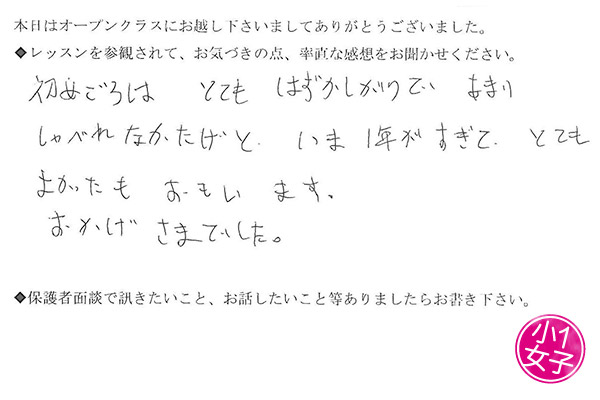 本日はオープンクラスにお越し下さいましてありがとうございました。
◆レッスンを参観されて、お気づきの点、率直な感想をお聞かせください。
初めごろは とても はずかしがりで あまり
しゃべれなかたげど、いま 1年がすぎて、とても
よかったも おもい ます。
おかげ さまでした。
◆保護者面談で訊きたいこと、お話したいこと等ありましたらお書き下さい。
小1
女子